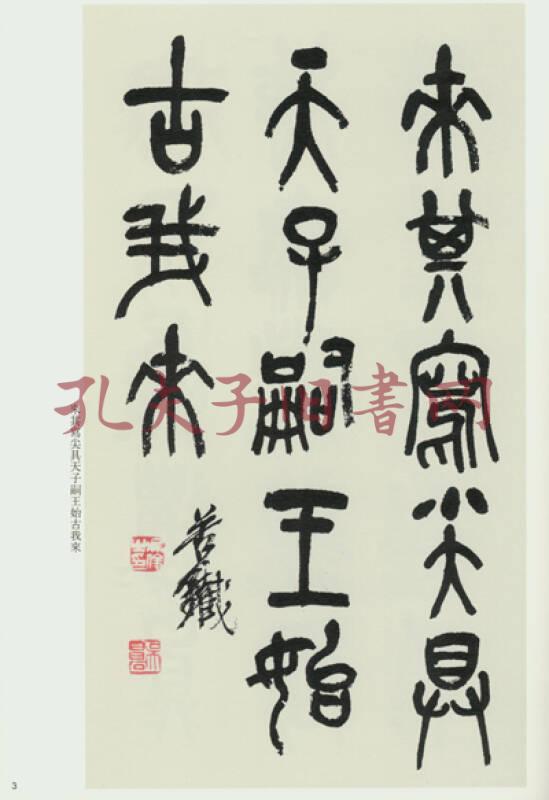 来其寫尖具
天子嗣王始
古我来
苦鐵
来其寫尖具天子嗣王始古我來
孔夫子旧書网
3